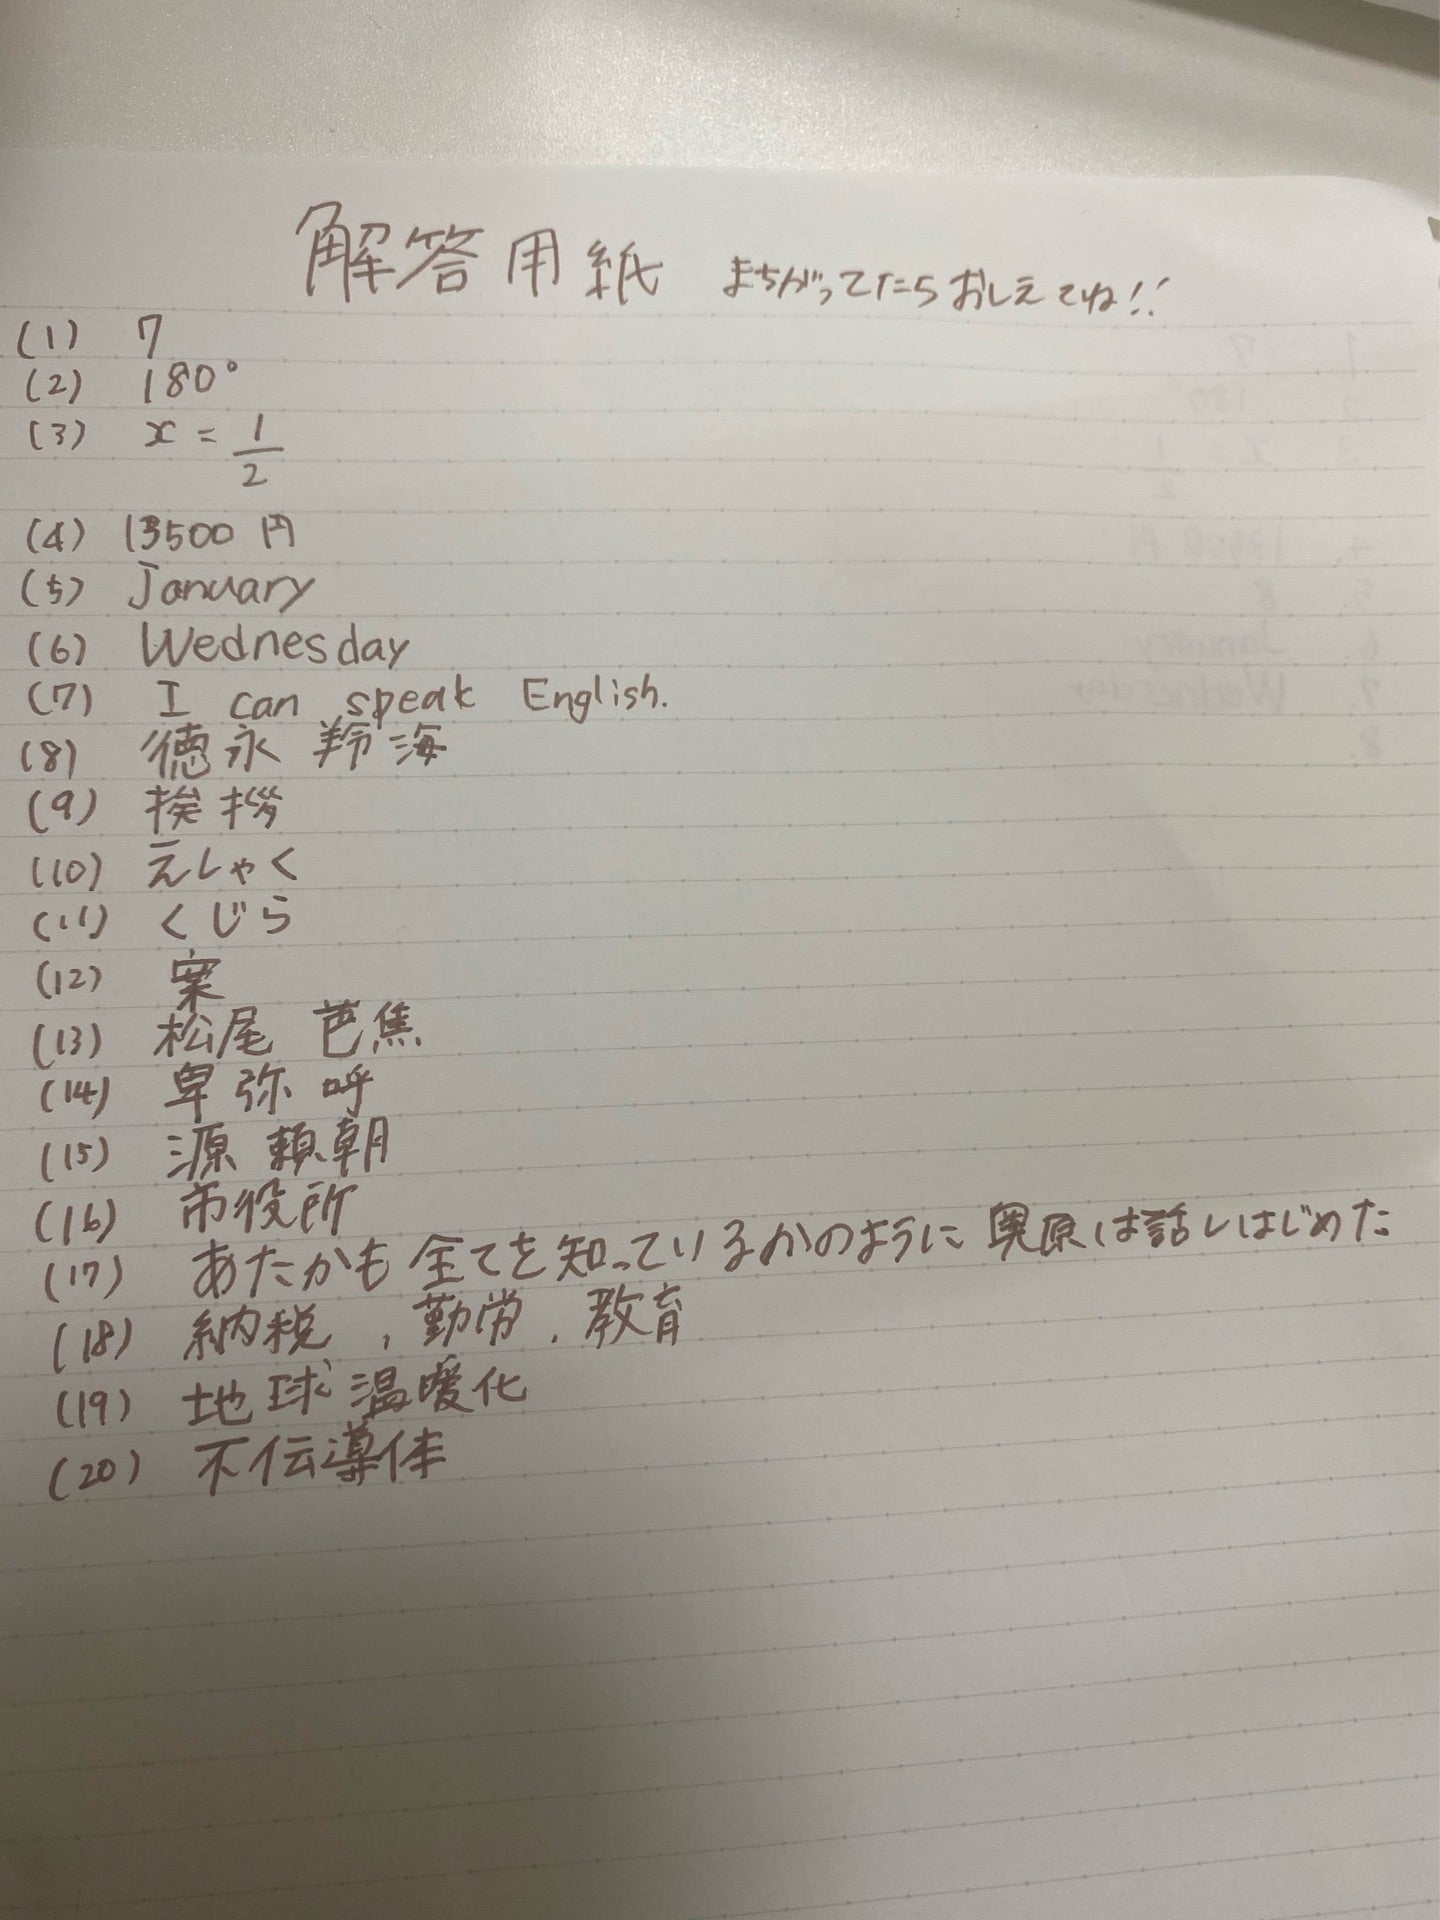 解答用紙 まちがってたらおしえてね!!
(1) 7
(2) 180°
(3) x = 1/2
(4) 13500円
(5) January
(6) Wednesday
(7) I can speak English.
(8) 徳永 羚海
(9) 挨拶
(10) えしゃく
(11) くじら
(12) 案
(13) 松尾 芭蕉
(14) 卑弥呼
(15) 源 頼朝
(16) 市役所
(17) あたかも全てを知っているかのように奥原は話しはじめた
(18) 納税, 勤労, 教育
(19) 地球温暖化
(20) 不伝導体